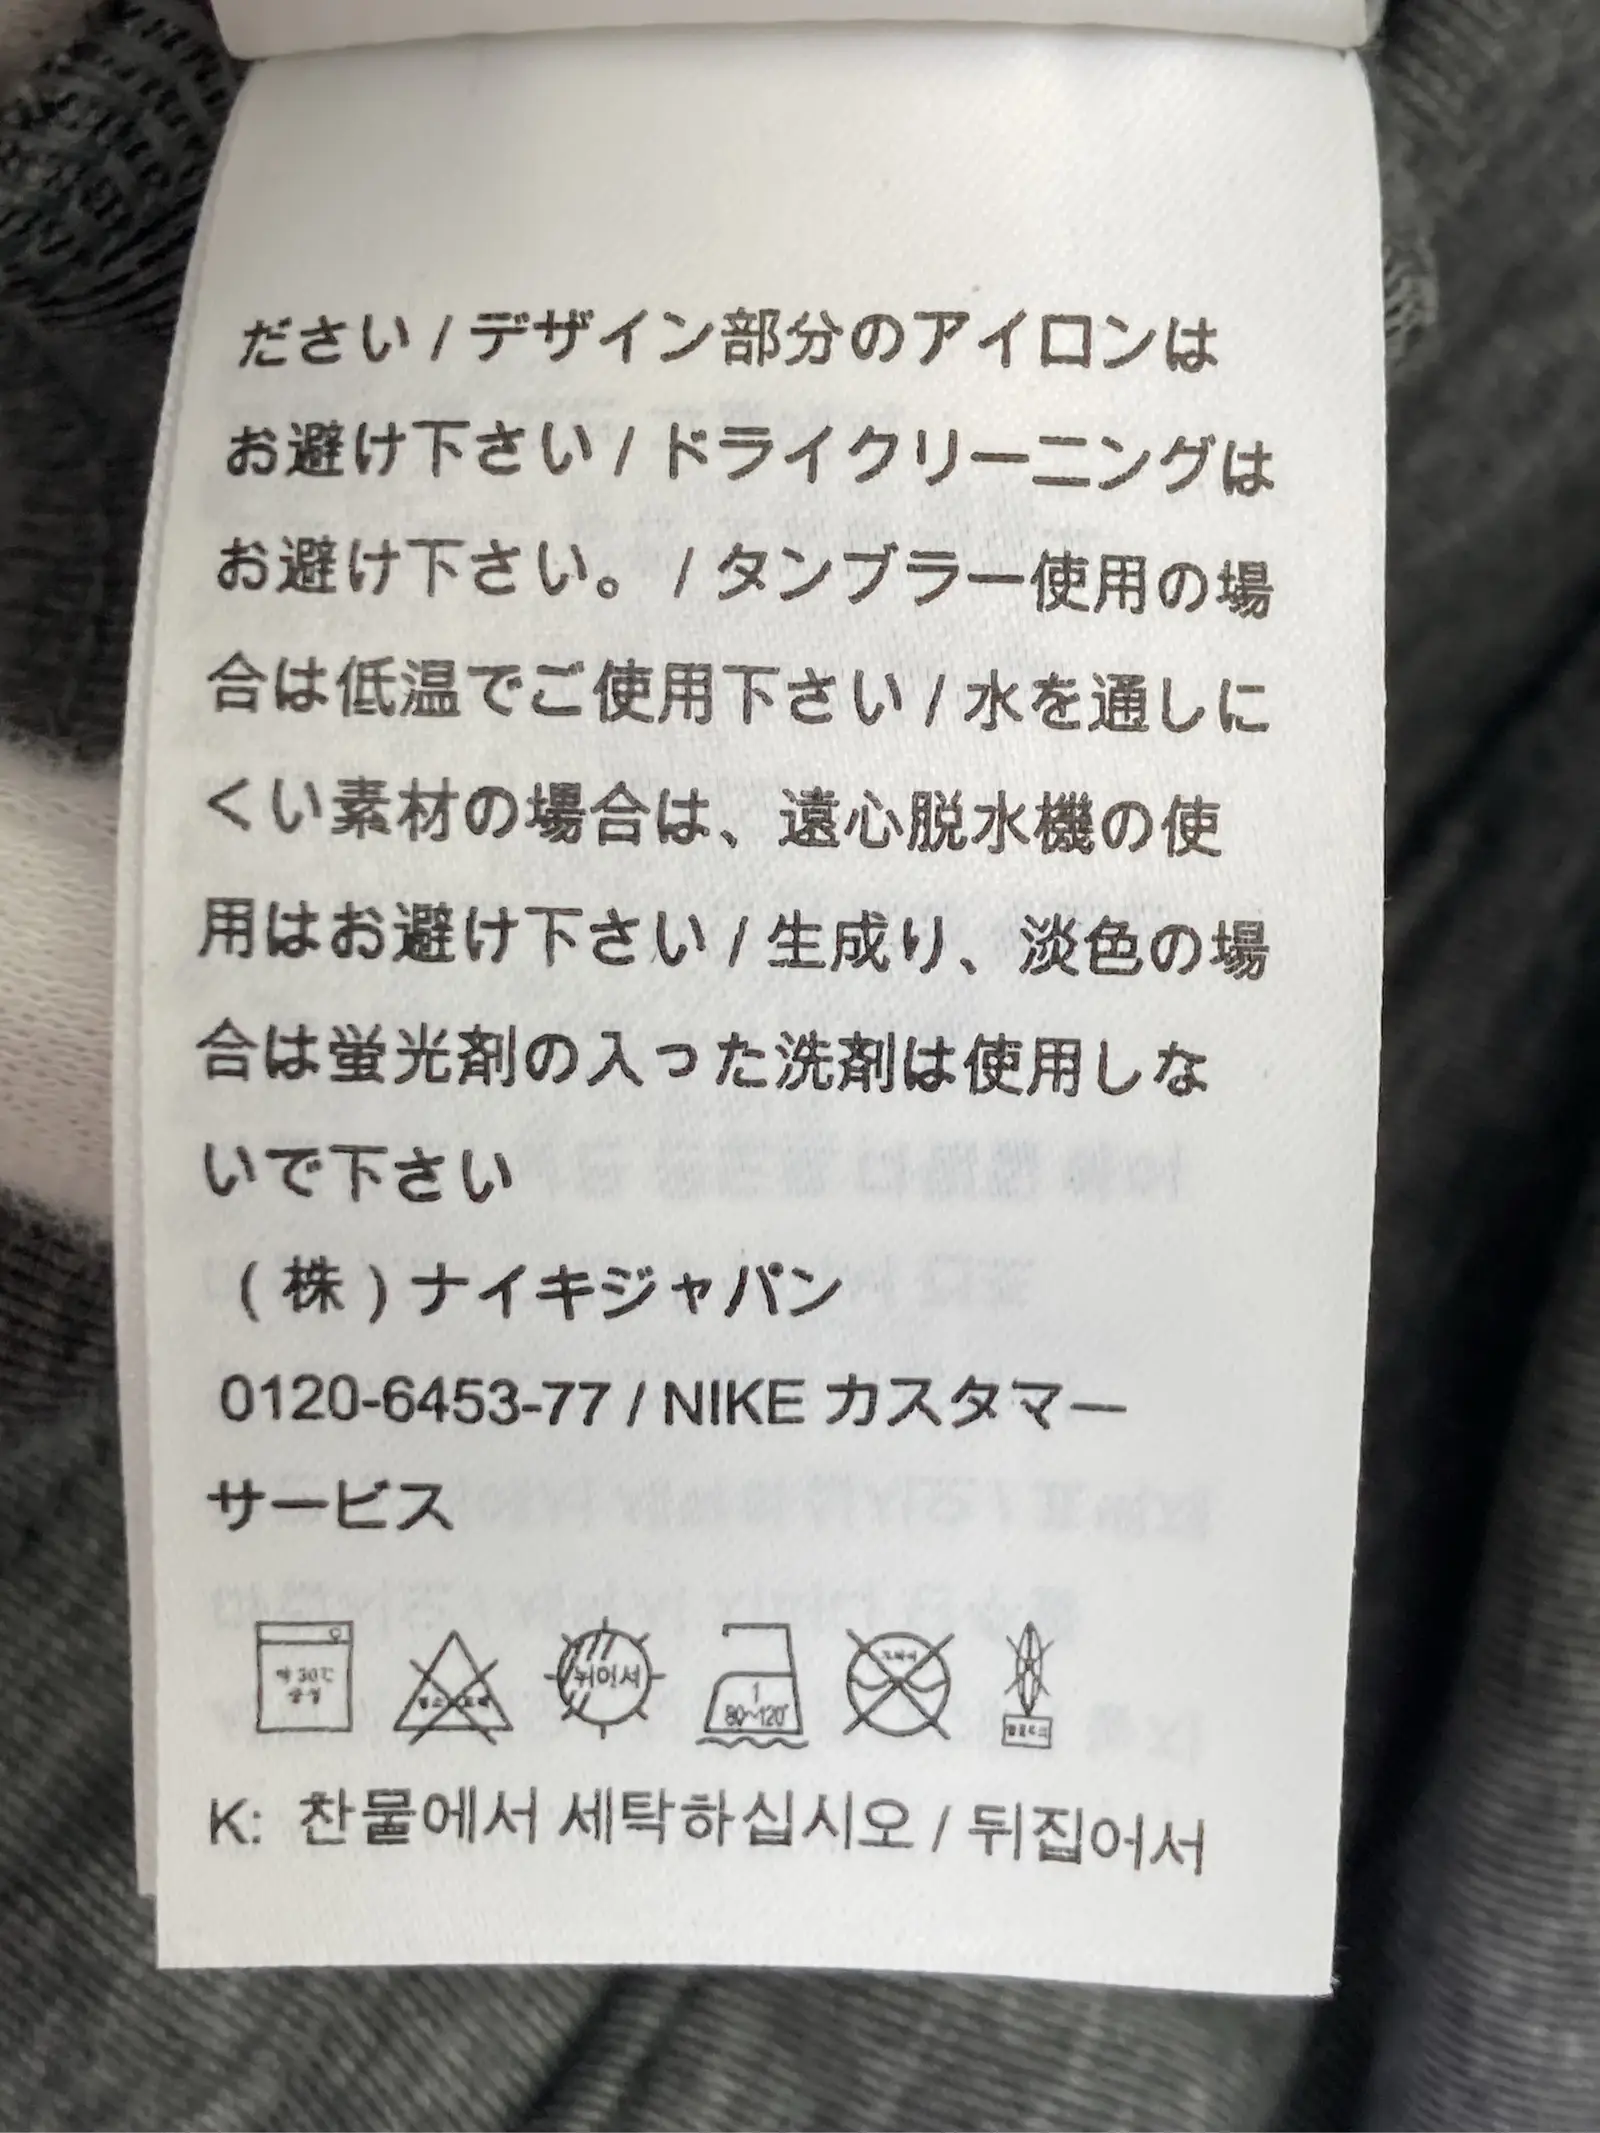 ださい / デザイン部分のアイロンは
お避け下さい / ドライクリーニングは
お避け下さい。 / タンブラー使用の場
合は低温でご使用下さい / 水を通しに
くい素材の場合は、遠心脱水機の使
用はお避け下さい / 生成り、淡色の場
合は蛍光剤の入った洗剤は使用しな
いで下さい
( 株 ) ナイキジャパン
0120-6453-77 / NIKE カスタマー
サービス
약 30℃
중성
뉘어서
1
80~120°
K: 찬물에서 세탁하십시오 / 뒤집어서